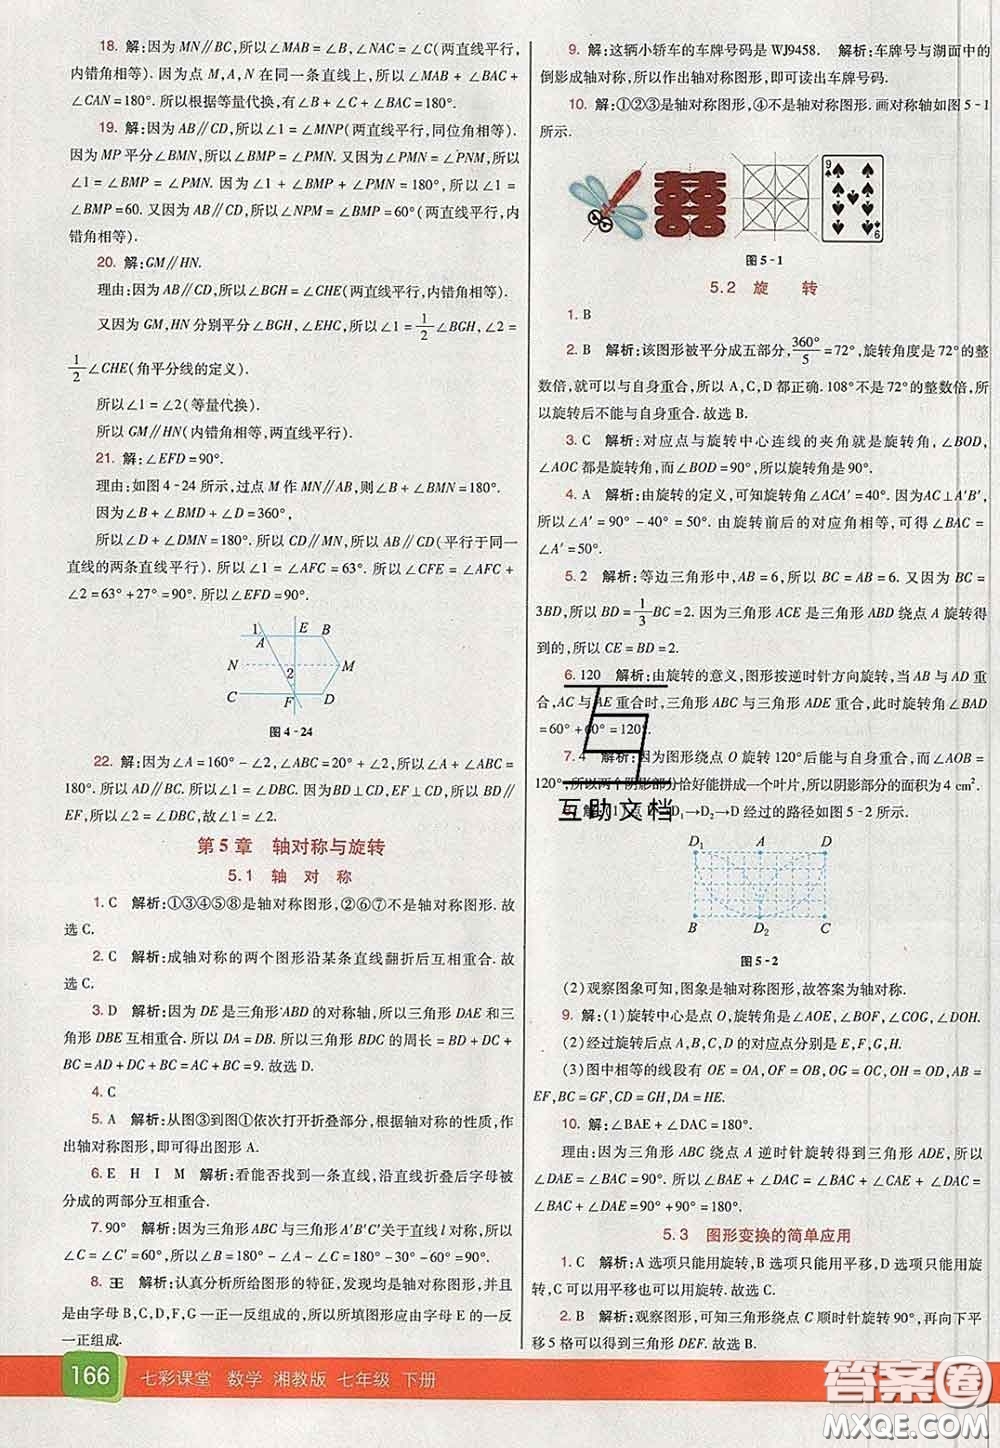 18. 解:因为MN∥BC,所以∠MAB=∠B,∠NAC=∠C(两直线平行,
内错角相等).因为点M,A,N在同一条直线上,所以∠MAB+∠BAC+
∠CAN=180°.所以根据等量代换,有∠B+∠C+∠BAC=180°.
19. 解:因为AB∥CD,所以∠1=∠MNP(两直线平行,同位角相等).
因为MP平分∠BMN,所以∠BMP=∠PMN.又因为∠PMN=∠PNM,所以
∠1=∠BMP=∠PMN.因为∠1+∠BMP+∠PMN=180°,所以∠1=
∠BMP=60.又因为AB∥CD,所以∠NPM=∠BMP=60°(两直线平行,内
错角相等).
20. 解:GM∥HN.
理由:因为AB∥CD,所以∠BGH=∠CHE(两直线平行,内错角相等).
又因为GM,HN分别平分∠BGH,∠EHC,所以∠1=1/2∠BGH,∠2=
1/2∠CHE(角平分线的定义).
所以∠1=∠2(等量代换).
所以GM∥HN(内错角相等,两直线平行).
21. 解:∠EFD=90°.
理由:如图4-24所示,过点M作MN∥AB,则∠B+∠BMN=180°.
因为∠B+∠BMD+∠D=360°,
所以∠D+∠DMN=180°.所以CD∥MN,所以AB∥CD(平行于同一
直线的两条直线平行).所以∠1=∠AFC=63°.所以∠CFE=∠AFC+
∠2=63°+27°=90°.所以∠EFD=90°.
1 A E B
N 2 M
C F D
图4-24
22. 解:因为∠A=160°-∠2,∠ABC=20°+∠2,所以∠A+∠ABC=
180°.所以AD∥BC,所以∠1=∠DBC.因为BD⊥CD,EF⊥CD,所以BD∥
EF,所以∠2=∠DBC,所以∠1=∠2.
第5章 轴对称与旋转
5.1 轴对称
1. C 解析:①③④⑤⑧是轴对称图形,②⑥⑦不是轴对称图形.故
选C.
2. C 解析:成轴对称的两个图形沿某条直线翻折后互相重合.故
选C.
3. D 解析:因为DE是三角形ABD的对称轴,所以三角形DAE和三
角形DBE互相重合.所以DA=DB.所以三角形BDC的周长=BD+DC+
BC=AD+DC+BC=AC+BC=9.故选D.
4. C
5. A 解析:从图③到图①依次打开折叠部分,根据轴对称的性质,作
出轴对称图形,即可得出图形A.
6. E H I M 解析:看能否找到一条直线,沿直线折叠后字母被
分成的两部分互相重合.
7. 90° 解析:因为三角形ABC与三角形A′B′C′关于直线l对称,所以
∠C=∠C′=60°.所以∠B=180°-∠A-∠C=180°-30°-60°=90°.
8. 解析:认真分析所给图形的特征,发现均是轴对称图形,并且
是由字母B,C,D,F,G一正一反组成的,所以所填图形应由字母E的一反
一正组成.
166 七彩课堂 数学 湘教版 七年级 下册
9. 解:这辆小轿车的车牌号码是WJ9458. 解析:车牌号与湖面中的
倒影成轴对称,所以作出轴对称图形,即可读出车牌号码.
10. 解:①②③是轴对称图形,④不是轴对称图形.画对称轴如图5-1
所示.
9
6
图5-1
5.2 旋转
1. B
2. B 解析:该图形被平分成五部分,360°/5=72°,旋转角度是72°的整
数倍,就可以与自身重合,所以A,C,D都正确.108°不是72°的整数倍,所
以旋转后不能与自身重合.故选B.
3. C 解析:对应点与旋转中心连线的夹角就是旋转角,∠BOD,
∠AOC都是旋转角.而∠BOD=90°,所以旋转角是90°.
4. A 解析:由旋转的定义,可知旋转角∠ACA′=40°.因为AC⊥A′B′,
所以∠A′=90°-40°=50°.由旋转前后的对应角相等,可得∠BAC=
∠A′=50°.
5. 2 解析:等边三角形中,AB=6,所以BC=AB=6.又因为BC=
3BD,所以BD=1/3BC=2.因为三角形ACE是三角形ABD绕点A旋转得
到的,所以CE=BD=2.
6. 120 解析:由旋转的意义,图形按逆时针方向旋转,当AB与AD重
合,AC与AE重合时,三角形ABC与三角形ADE重合,此时旋转角∠BAD
=60°+60°=120°.
7. 4 解析:因为图形绕点O旋转120°后能与自身重合,而∠AOB=
120°,所以两个阴影部分恰好能拼成一个叶片,所以阴影部分的面积为4 cm².
互助文档
(1)点D→D₁→D₂→D经过的路径如图5-2所示.
D₁ A D
B D₂ C
图5-2
(2)观察图象可知,图象是轴对称图形,故答案为轴对称.
9. 解:(1)旋转中心是点O,旋转角是∠AOE,∠BOF,∠COG,∠DOH.
(2)经过旋转后点A,B,C,D的对应点分别是E,F,G,H.
(3)图中相等的线段有OE=OA,OF=OB,OG=OC,OH=OD,AB=HE,
BC=GF,CD=HG,DA=HE.
10. 解:∠BAE+∠DAC=180°.
理由:因为三角形ABC绕点A逆时针旋转得到三角形ADE,所以
∠BAD=∠CAE=90°.所以∠BAE+∠DAC=∠BAC+∠CAE+∠DAC=
∠BAD+∠CAE=90°+90°=180°.
5.3 图形变换的简单应用
1. C 解析:A选项只能用旋转,B选项只能用平移,D选项只能用旋
转,C选项可以用平移也可以用旋转.
2. B 解析:观察图形,可知三角形绕点C顺时针旋转90°,再向下平
移5格可以得到三角形DEF.故选B.
答案圈
MXQE.COM